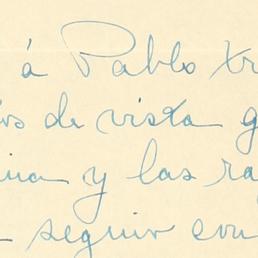 á Pablo tr
os de vista q
ina y las ra
seguir con